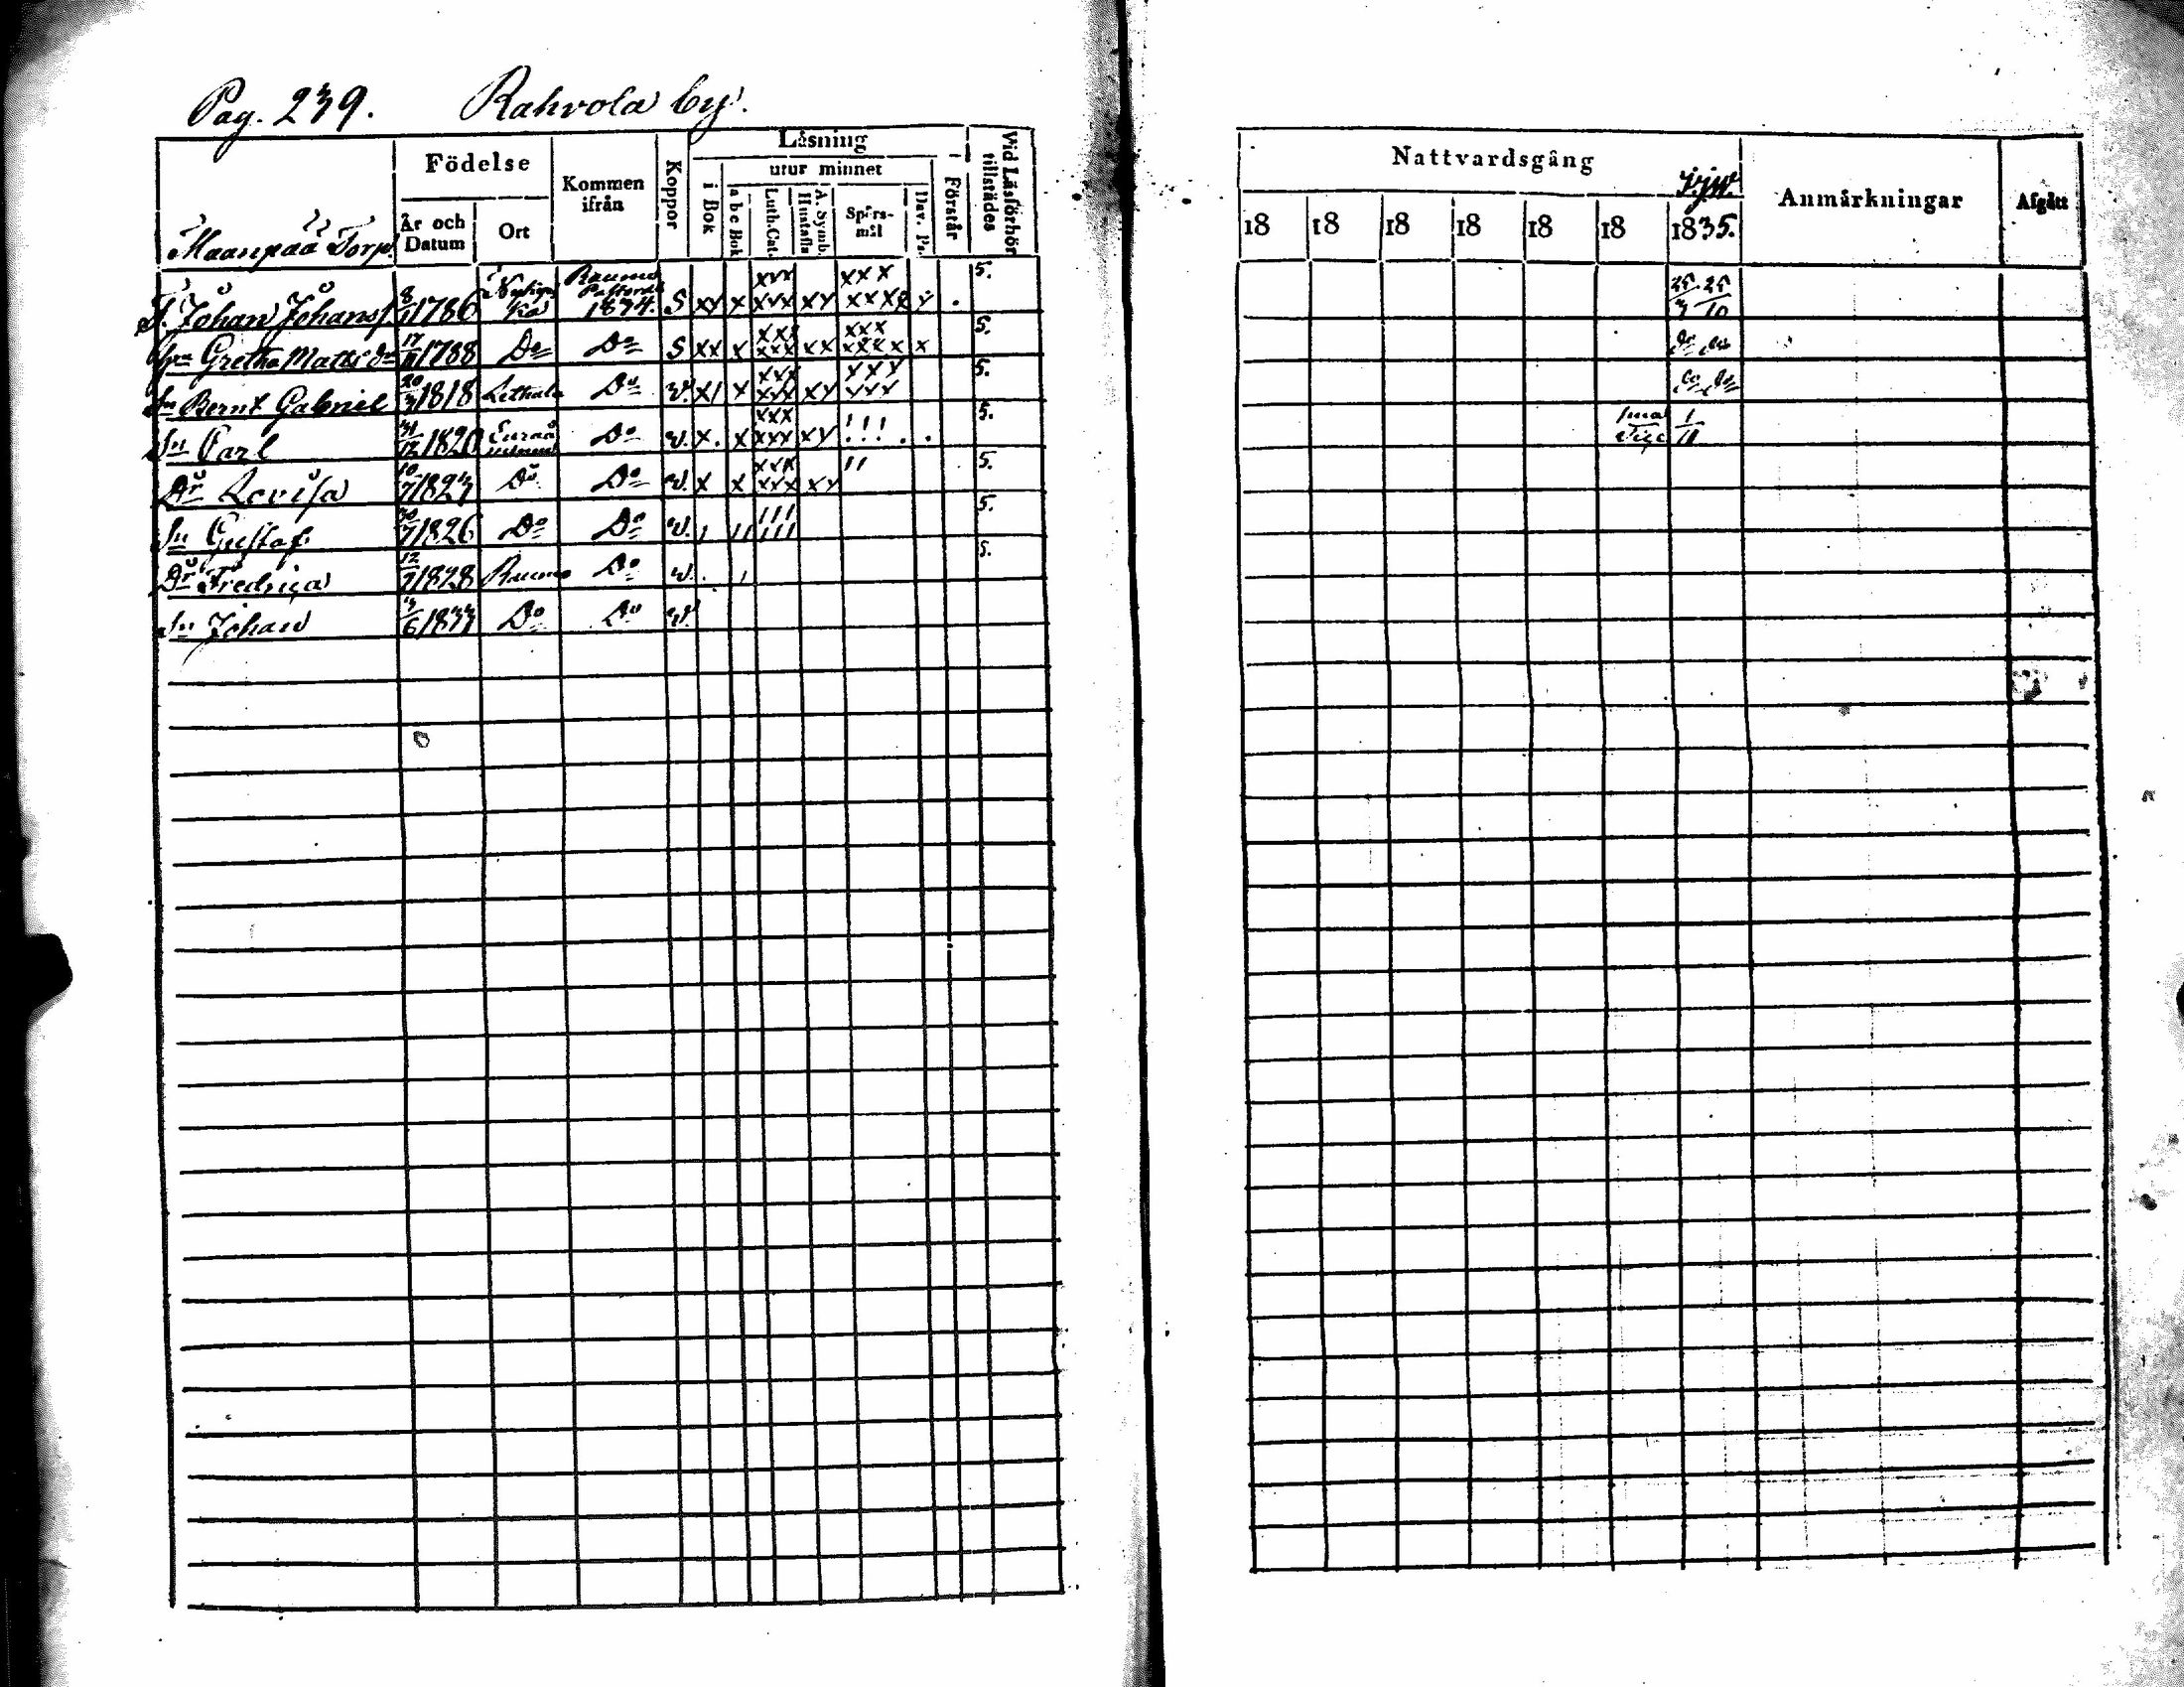 Pag. 239. Rahvola by.
Maanpää Torp.
Födelse
År och Datum
Ort
Kommen ifrån
Koppor
Läsning
i Bok
utur minnet
a b c Bok
Luth. Cat.
A. Symb. Hustafla
Spörs-mål
Dav. Ps.
Förstår
Vid Läsförhör tillstädes
T. Johan Johanss. 8/1 1786 Raumo 1834. S xx x xxx xxx xx xxx 5.
Gretha Matts dr 17/11 1788 Do Do S xx x xxx xxx xx xxx xxxx x 5.
Sn Bernt Gabriel 20/3 1818 Do v. x/ x xxx xxx xx xxx xxx 5.
Sn Carl 31/12 1820 Do v. x. x xxx xxx xx !!! . . 5.
Dr Lovisa 10/7 1823 Do Do v. x x xxx xxx xx 5.
Sn Gustaf 30/7 1826 Do Do v. 5.
Dr Fredrica 12/7 1828 Raumo Do v. 5.
Sn Johan 3/6 1833 Do Do v.
Nattvardsgång
18 18 18 18 18 18 1835.
Anmärkningar
Afgått
25/3 25/10
do do
do do
1/11